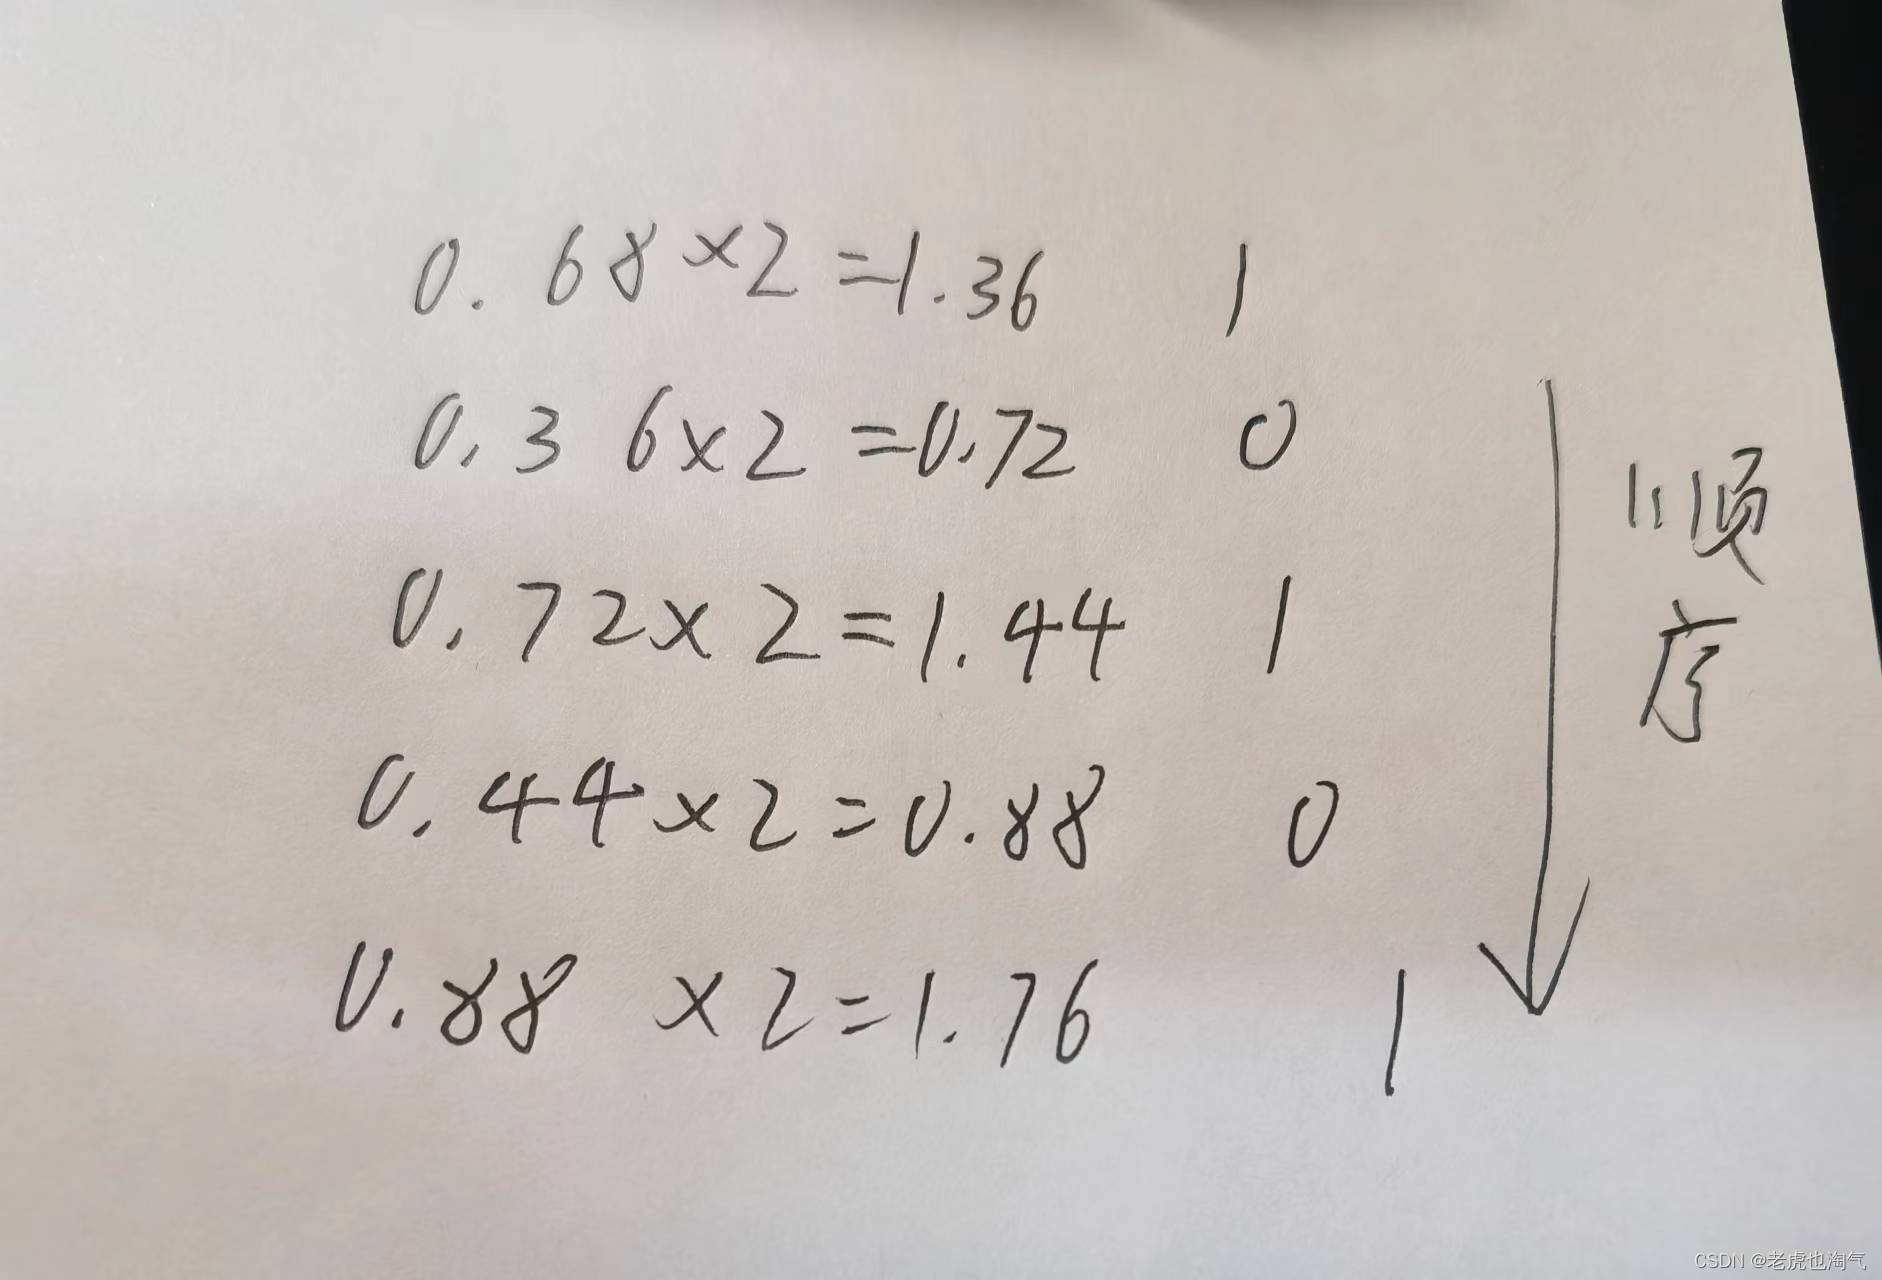 0.68×2=1.36 1
0.36×2=0.72 0
0.72×2=1.44 1
0.44×2=0.88 0
0.88×2=1.76 1
顺序
CSDN @老虎也淘气